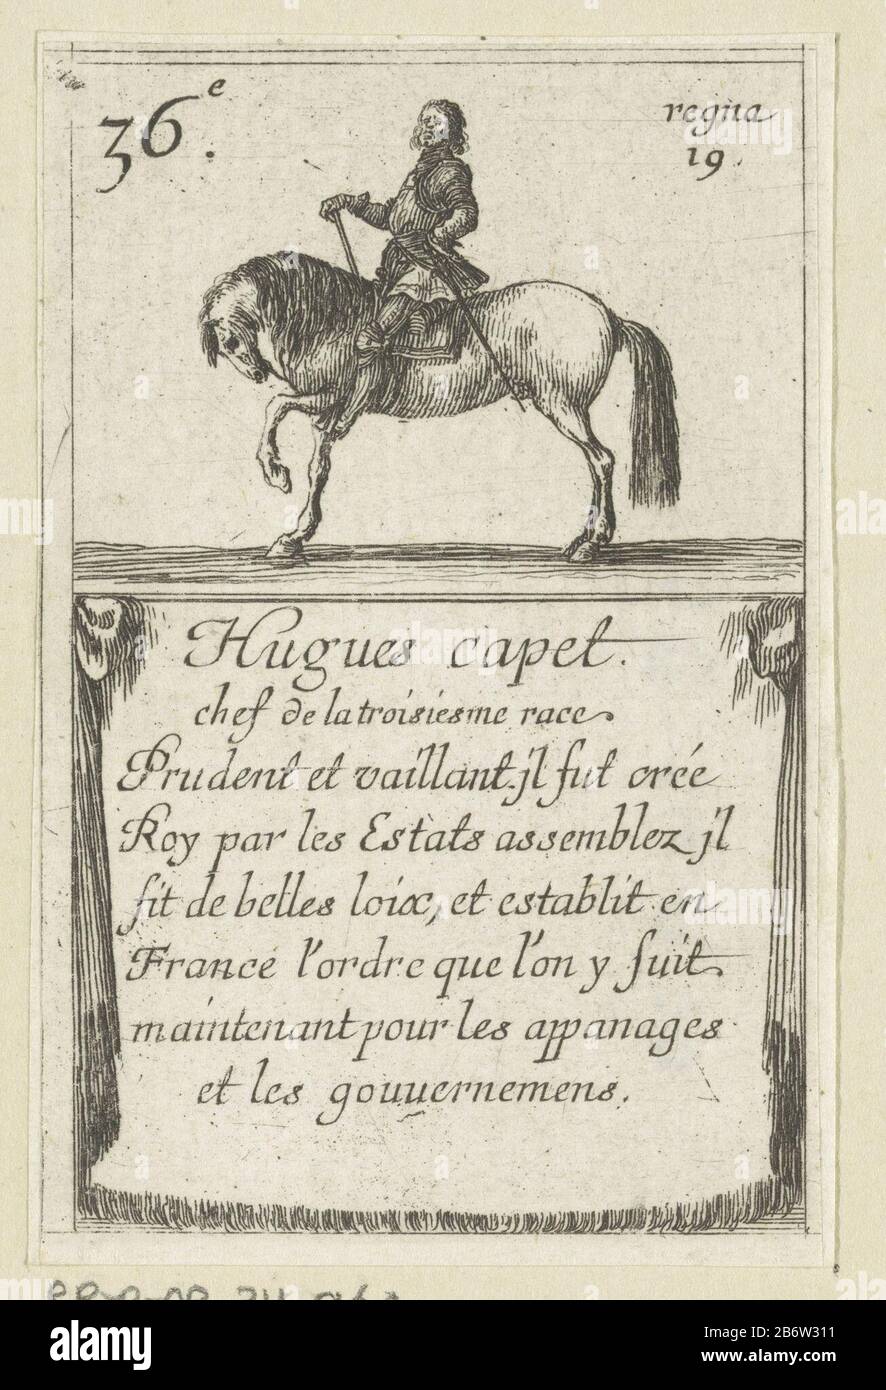 36.e
regna
19.
Hugues capet.
chef de la troisiesme race.
Prudent et vaillant. jl fut crée
Roy par les Estats assemblez jl
fit de belles loix, et establit en
France l'ordre que l'on y suit
maintenant pour les appanages
et les gouuernemens.
alamy
Image ID: 2B6W311
www.alamy.com